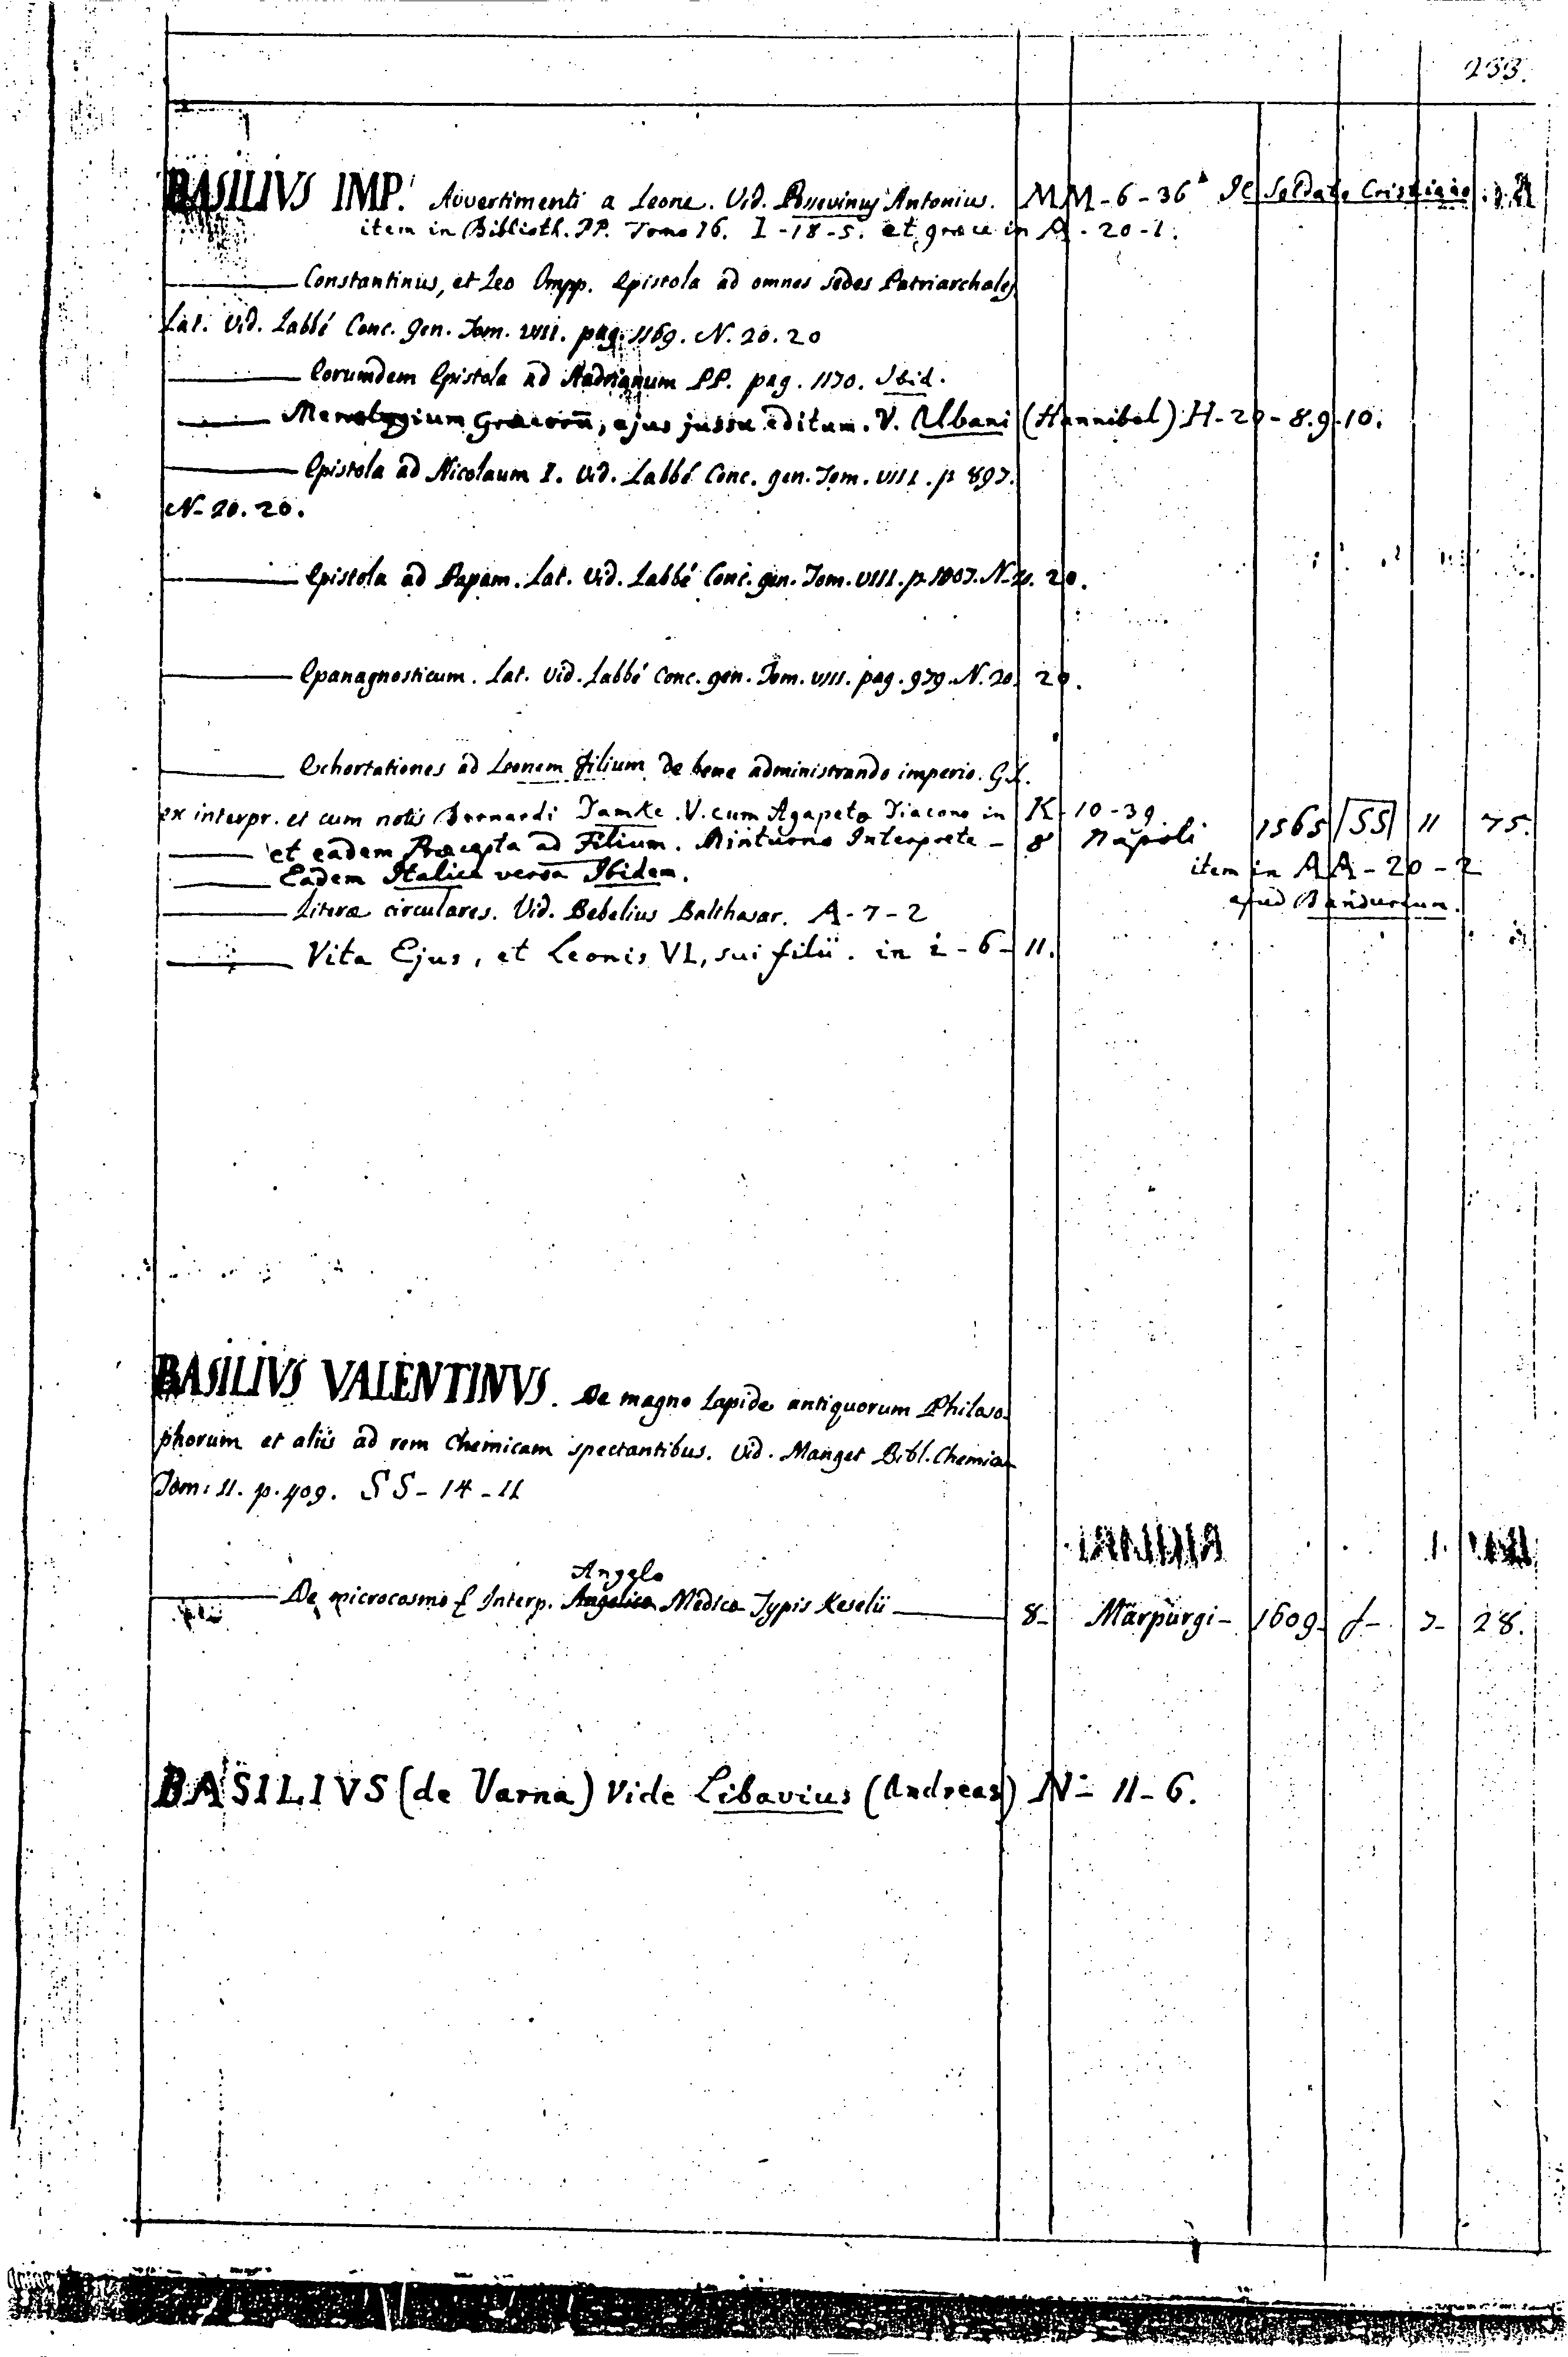 233.
BASILIVS IMP. Avvertimenti a Leone. Vid. Possevinus Antonius. MM-6-36 Il Soldato Cristiano
item in Biblioth. PP. Tomo 16. I-18-5. et græce in A-20-1.
Constantinus, et Leo Impp. Epistola ad omnes sedes Patriarchales
Lat. Vid. Labbé Conc. gen. Tom. VIII. pag. 1169. N. 20. 20
Eorumdem Epistola ad Hadrianum PP. pag. 1170. Ibid.
Menologium Græcorū, ejus jussu editum. V. Albani (Hannibal) H-20-8.9.10.
Epistola ad Nicolaum I. Vid. Labbé Conc. gen. Tom. VIII. p 897.
N-20. 20.
Epistola ad Papam. Lat. Vid. Labbé Conc. gen. Tom. VIII. p. 1007. N-20. 20.
Epanagnosticum. Lat. Vid. Labbé Conc. gen. Tom. VIII. pag. 979. N. 20. 20.
Exhortationes ad Leonem filium de bene administrando imperio. G.L.
ex interpr. et cum notis Bernardi Damke. V. cum Agapeto Diacono in K-10-39.
et eadem Præcepta ad Filium. Minturno Interprete - 8 Napoli 1565 SS 11 75.
Eadem Italica versa Ibidem. item in AA-20-2
apud Bandurium.
Literæ circulares. Vid. Bebelius Balthasar. A-7-2
Vita Ejus, et Leonis VI, sui filii. in i-6-11.
BASILIVS VALENTINVS. De magno Lapide antiquorum Philoso-
phorum et aliis ad rem Chemicam spectantibus. Vid. Manget Bibl. Chemica
Tom: II. p. 409. SS-14-11
Angelo
De microcosmo & Interp. Angelico Medico Typis Keselii 8- Marpurgi- 1609- f- 7- 28.
BASILIVS (de Varna) Vide Libavius (Andreas) N- 11-6.